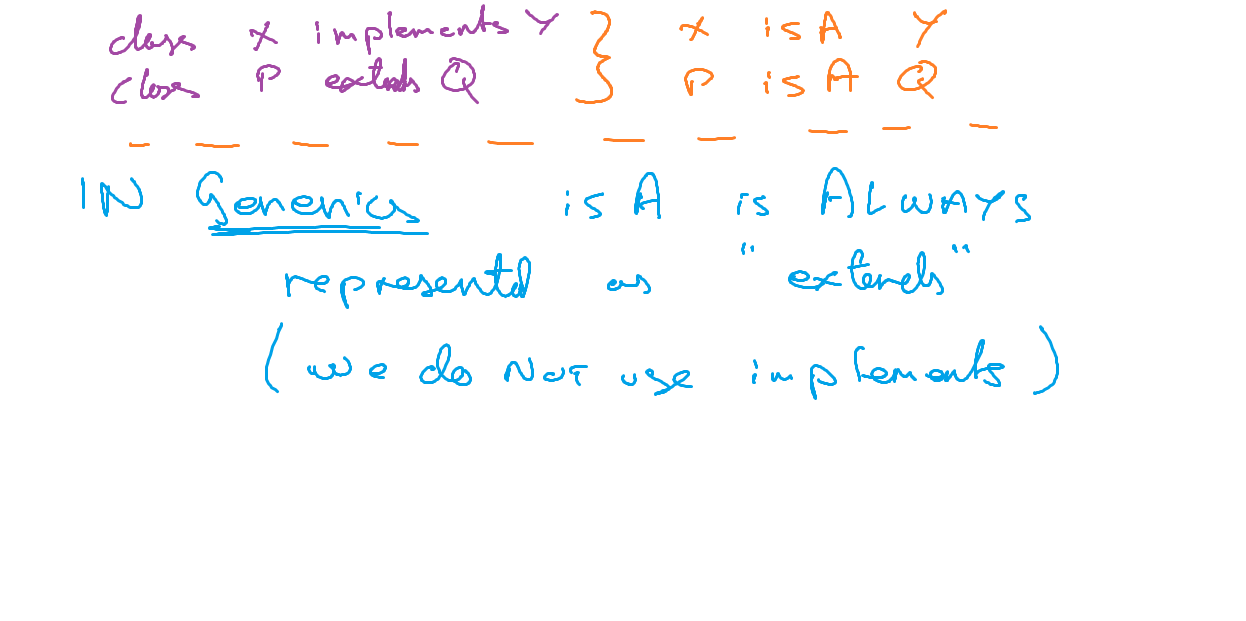 class X implements Y } X isA Y
class P extends Q } P isA Q
IN Generics isA is ALWAYS
representd as "extends"
(we do NOT use implements)